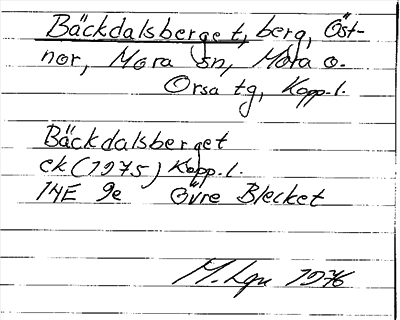 Bäckdalsberget, berg, Öst-
nor, Mora sn, Mora o.
Orsa tg, Kopp. l.
Bäckdalsberget
ek (1975) Kopp. l.
14E 9e Övre Blecket
M. Lgn 1976